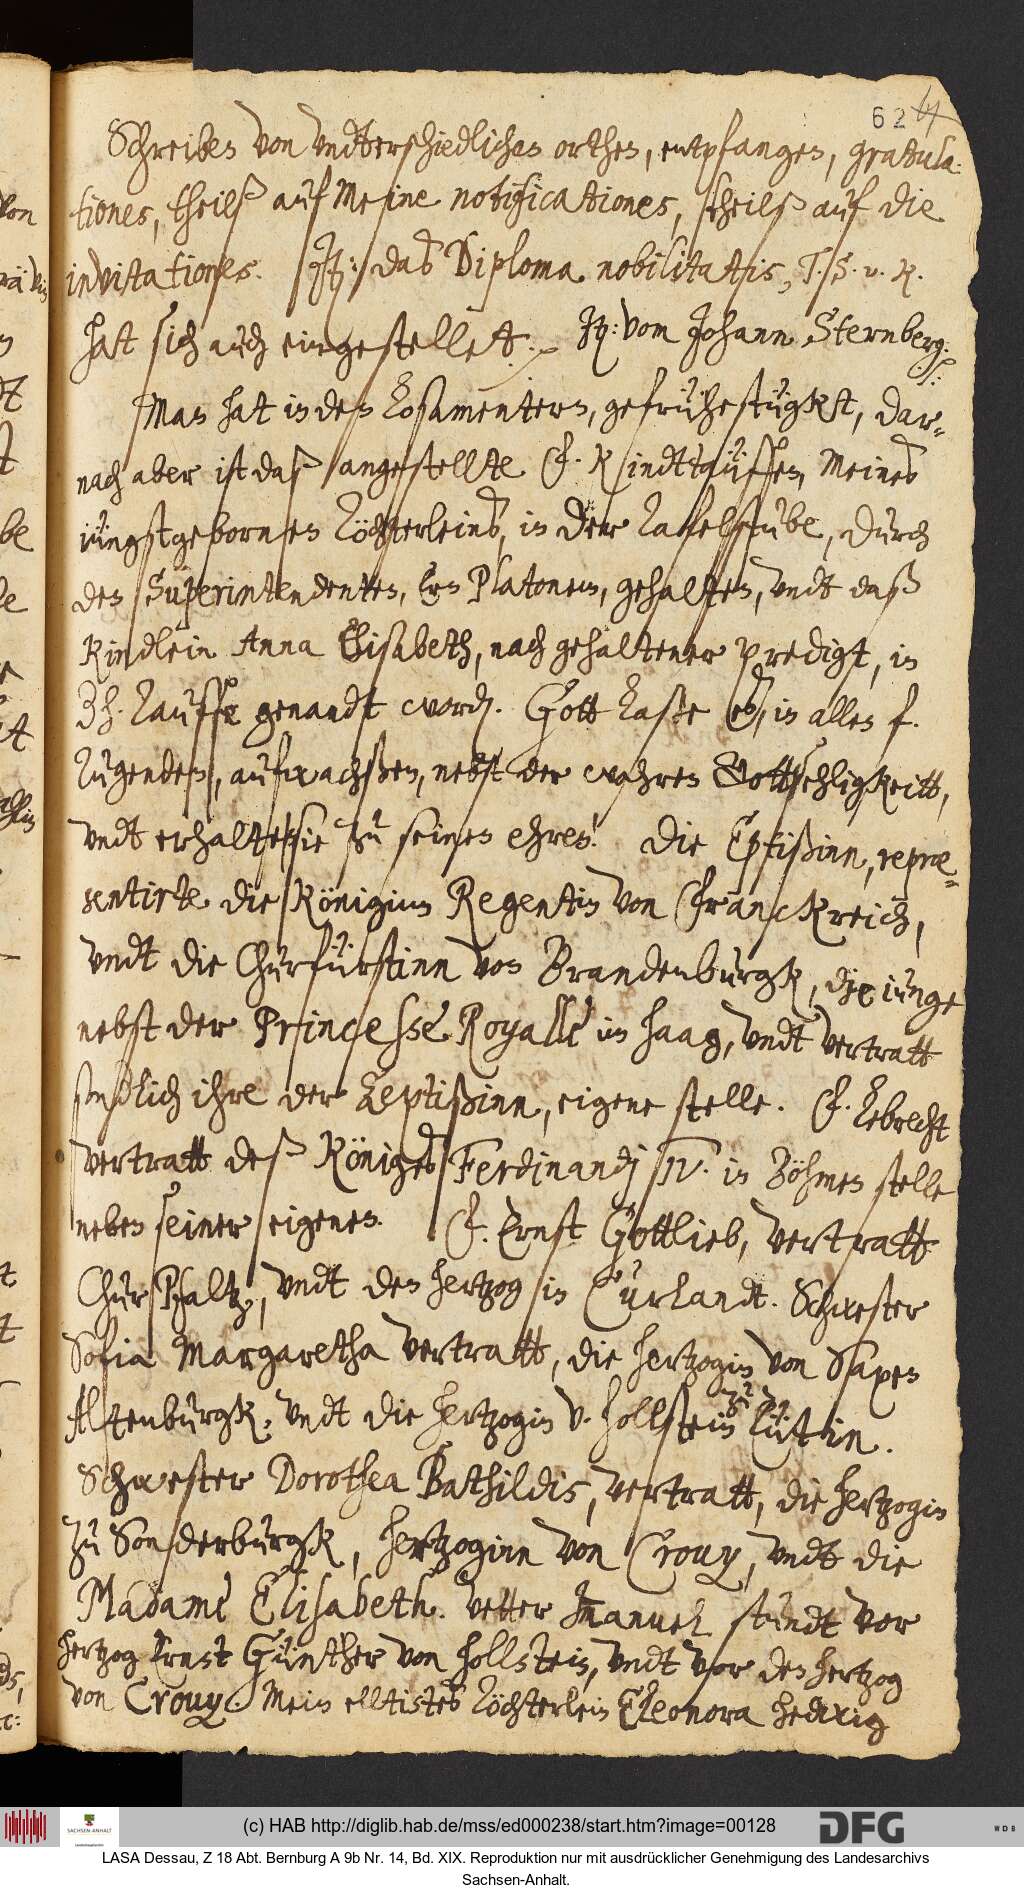 62
Schreiben von vndterschiedlichen orthen, entpfangen, gratula-
tiones, theilß auf Meine notificationes, theilß auf die
invitationes. It: das Diploma nobilitatis, T. S. v. K.
hat sich auch eingestellet. It: vom Johann Sternberg.
Man hat in den Losamentern, gefrühestügkt, dar-
nach aber ist daß angestellte F. Kindttäüffen, Meines
iüngstgebornen Töchterleins, in der Tafelstube, durch
den Superintendenten, Ern Platonem, gehalten, vndt daß
Kindlein Anna Elisabeth, nach gehaltener predigt, in
h. Tauffe genandt word. Gott laße es, in allen f.
Tugenden, aufwachßen, nebst der wahren Gottsehligkeitt,
vndt erhalte sie zu seinen ehren! Die Eptißinn, repræ-
sentirte die Königinn Regentin von Franckreich,
vndt die Churfürstinn von Brandenburgk, die iunge
nebst der Princesse Royalle im Haag, vndt vertratt
endlich ihre der Æptißinn, eigene stelle. F. Lebrecht
vertratt deß Königes Ferdinandj IV. in Böhmen stelle
neben seiner eigenen. F. Ernst Gottlieb, vertratt
Chur Pfaltz, vndt den Hertzog in Curlandt. Schwester
Sofia Margaretha vertratt, die Hertzogin von Saxen
Altenburgk, vndt die Hertzogin v. Hollstein zu Eütin.
Schwester Dorothea Bathildis, vertratt, die Hertzogin
zu Sonderburgk, Hertzoginn von Crouy, vndt die
Madame Elisabeth. Vetter Jmanuel stundt vor
Hertzog Ernst Günther von Hollstein, vndt vor den Hertzog
von Crouy. Mein elltistes Töchterlein Eleonora Hedwig
(c) HAB http://diglib.hab.de/mss/ed000238/start.htm?image=00128
SACHSEN-ANHALT
DFG
WDB
LASA Dessau, Z 18 Abt. Bernburg A 9b Nr. 14, Bd. XIX. Reproduktion nur mit ausdrücklicher Genehmigung des Landesarchivs
Sachsen-Anhalt.